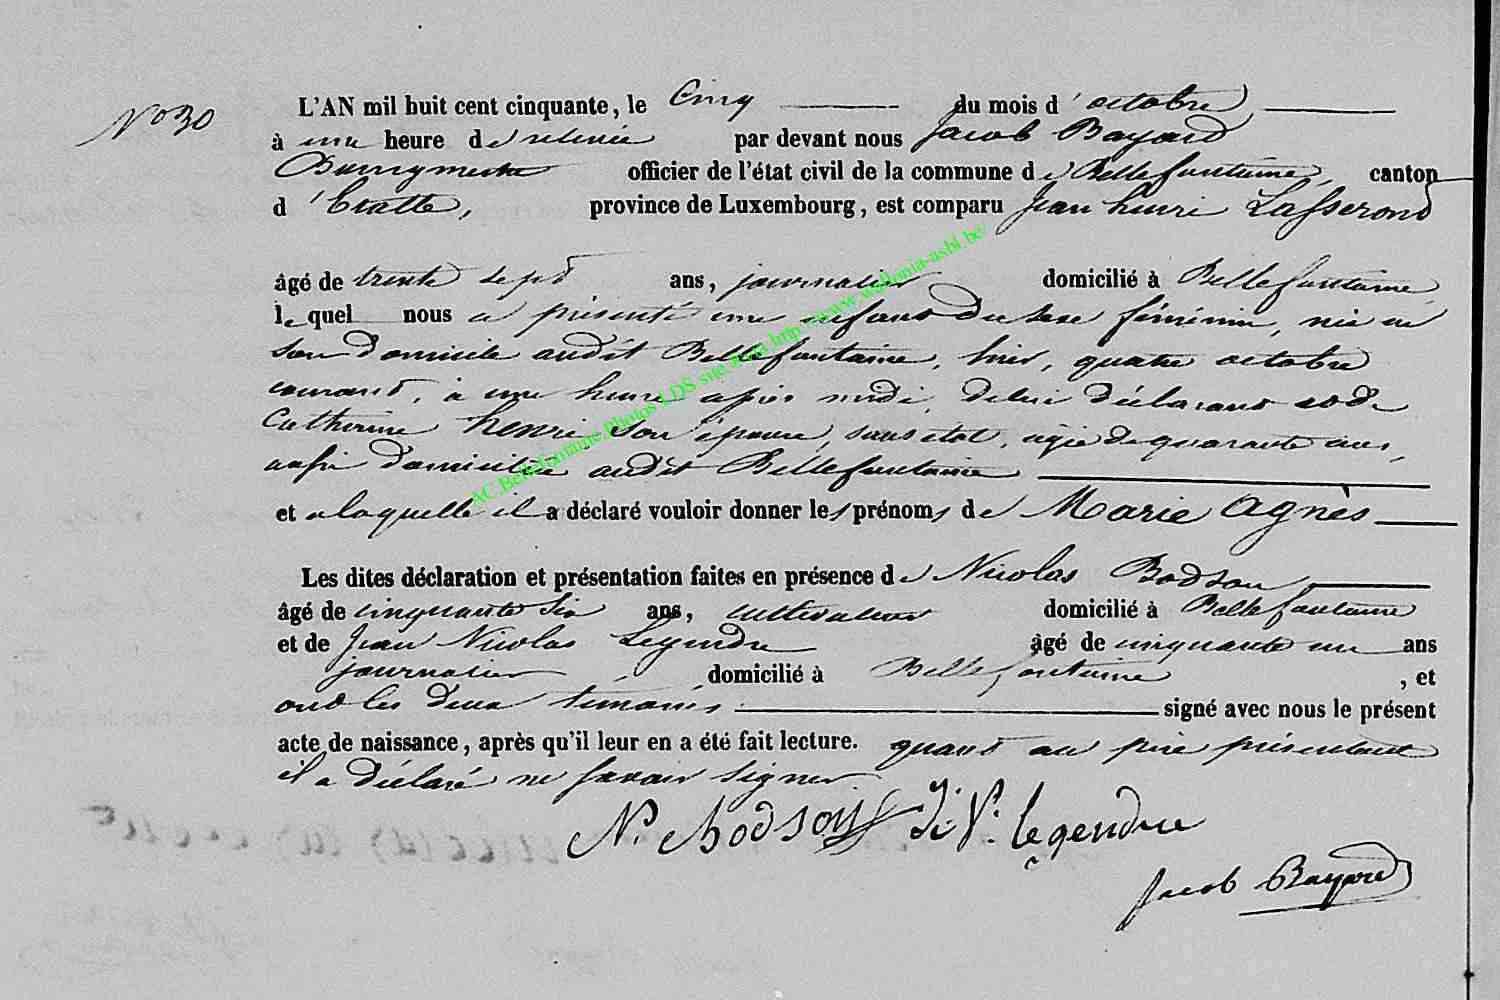 No 30
L'AN mil huit cent cinquante, le Cinq du mois d'octobre
à une heure de relevée par devant nous Jacob Bayard
Bourgmestre officier de l'état civil de la commune de Bellefontaine, canton
d'Etalle, province de Luxembourg, est comparu Jean henri Lasserond
âgé de trente sept ans, journalier domicilié à Bellefontaine,
lequel nous a présenté une enfant du sexe féminin, née en
son domicile audit Bellefontaine, hier, quatre octobre
courant, à une heure après midi, de lui déclarant et de
Catherine henri son épouse, sans état, agée de quarante ans,
aussi domiciliée audit Bellefontaine
et a laquelle il a déclaré vouloir donner les prénoms de Marie Agnès
Les dites déclaration et présentation faites en présence de Nicolas Bodson
âgé de cinquante six ans, cultivateur domicilié à Bellefontaine
et de Jean Nicolas Legendre âgé de cinquante un ans
journalier domicilié à Bellefontaine, et
ont les deux témoins signé avec nous le présent
acte de naissance, après qu'il leur en a été fait lecture. quant au père présentant
il a déclaré ne savoir signer
N. Bodson J. N. Legendre
Jacob Bayard